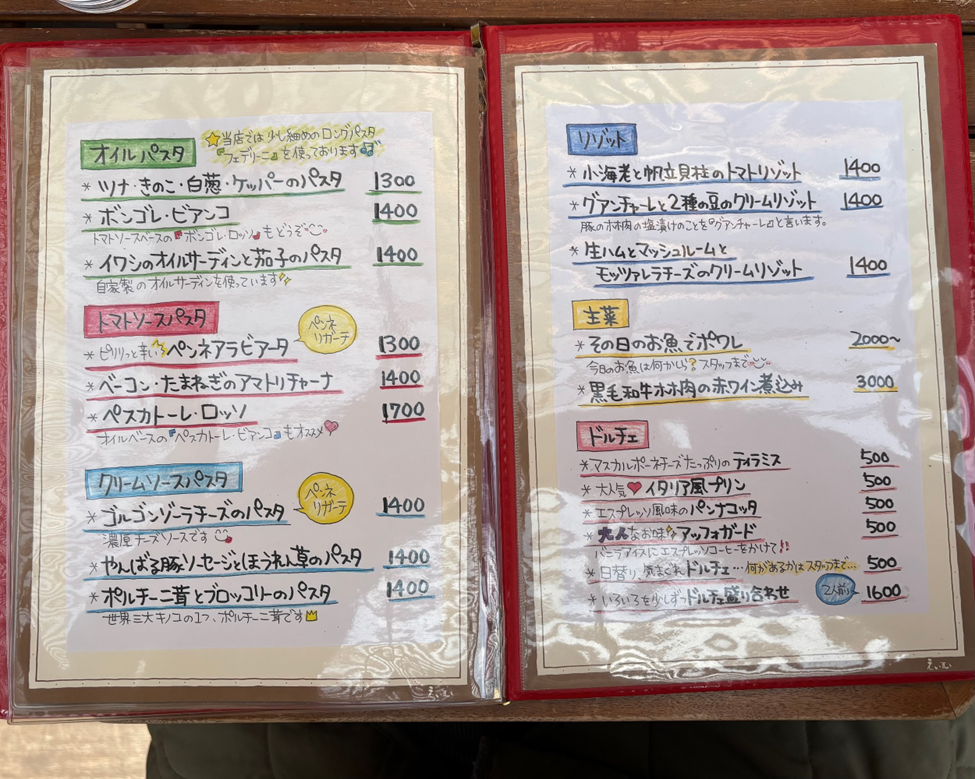 オイルパスタ
当店では少し細めのロングパスタ
『フェデリーニ』を使っております
* ツナ・きのこ・白葱・ケッパーのパスタ 1300
* ボンゴレ・ビアンコ 1400
トマトソースベースの『ボンゴレ・ロッソ』もどうぞ
* イワシのオイルサーディンと茄子のパスタ 1400
自家製のオイルサーディンを使っています
トマトソースパスタ
ペンネ
リガーテ
* ピリリっと辛い ペンネアラビアータ 1300
* ベーコン・たまねぎのアマトリチャーナ 1400
* ペスカトーレ・ロッソ 1700
オイルベースの『ペスカトーレ・ビアンコ』もオススメ
クリームソースパスタ
ペンネ
リガーテ
* ゴルゴンゾーラチーズのパスタ 1400
濃厚チーズソースです
* やんばる豚ソーセージとほうれん草のパスタ 1400
* ポルチーニ茸とブロッコリーのパスタ 1400
世界三大キノコの1つ、ポルチーニ茸です
リゾット
* 小海老と帆立貝柱のトマトリゾット 1400
* グアンチャーレと2種の豆のクリームリゾット 1400
豚のホホ肉の塩漬けのことを『グアンチャーレ』と言います。
* 生ハムとマッシュルームと
モッツァレラチーズのクリームリゾット 1400
主菜
* その日のお魚でポワレ 2000~
今日のお魚は何かしら？スタッフまで
* 黒毛和牛ホホ肉の赤ワイン煮込み 3000
ドルチェ
* マスカルポーネチーズたっぷりの ティラミス 500
* 大人気 イタリア風プリン 500
* エスプレッソ風味の パンナコッタ 500
* 大人なお味 アッフォガード 500
バニラアイスにエスプレッソコーヒーをかけて!!
* 日替り、気まぐれ ドルチェ…何があるかはスタッフまで… 500
* いろいろを少しずつ ドルチェ盛り合わせ 2人前 1600